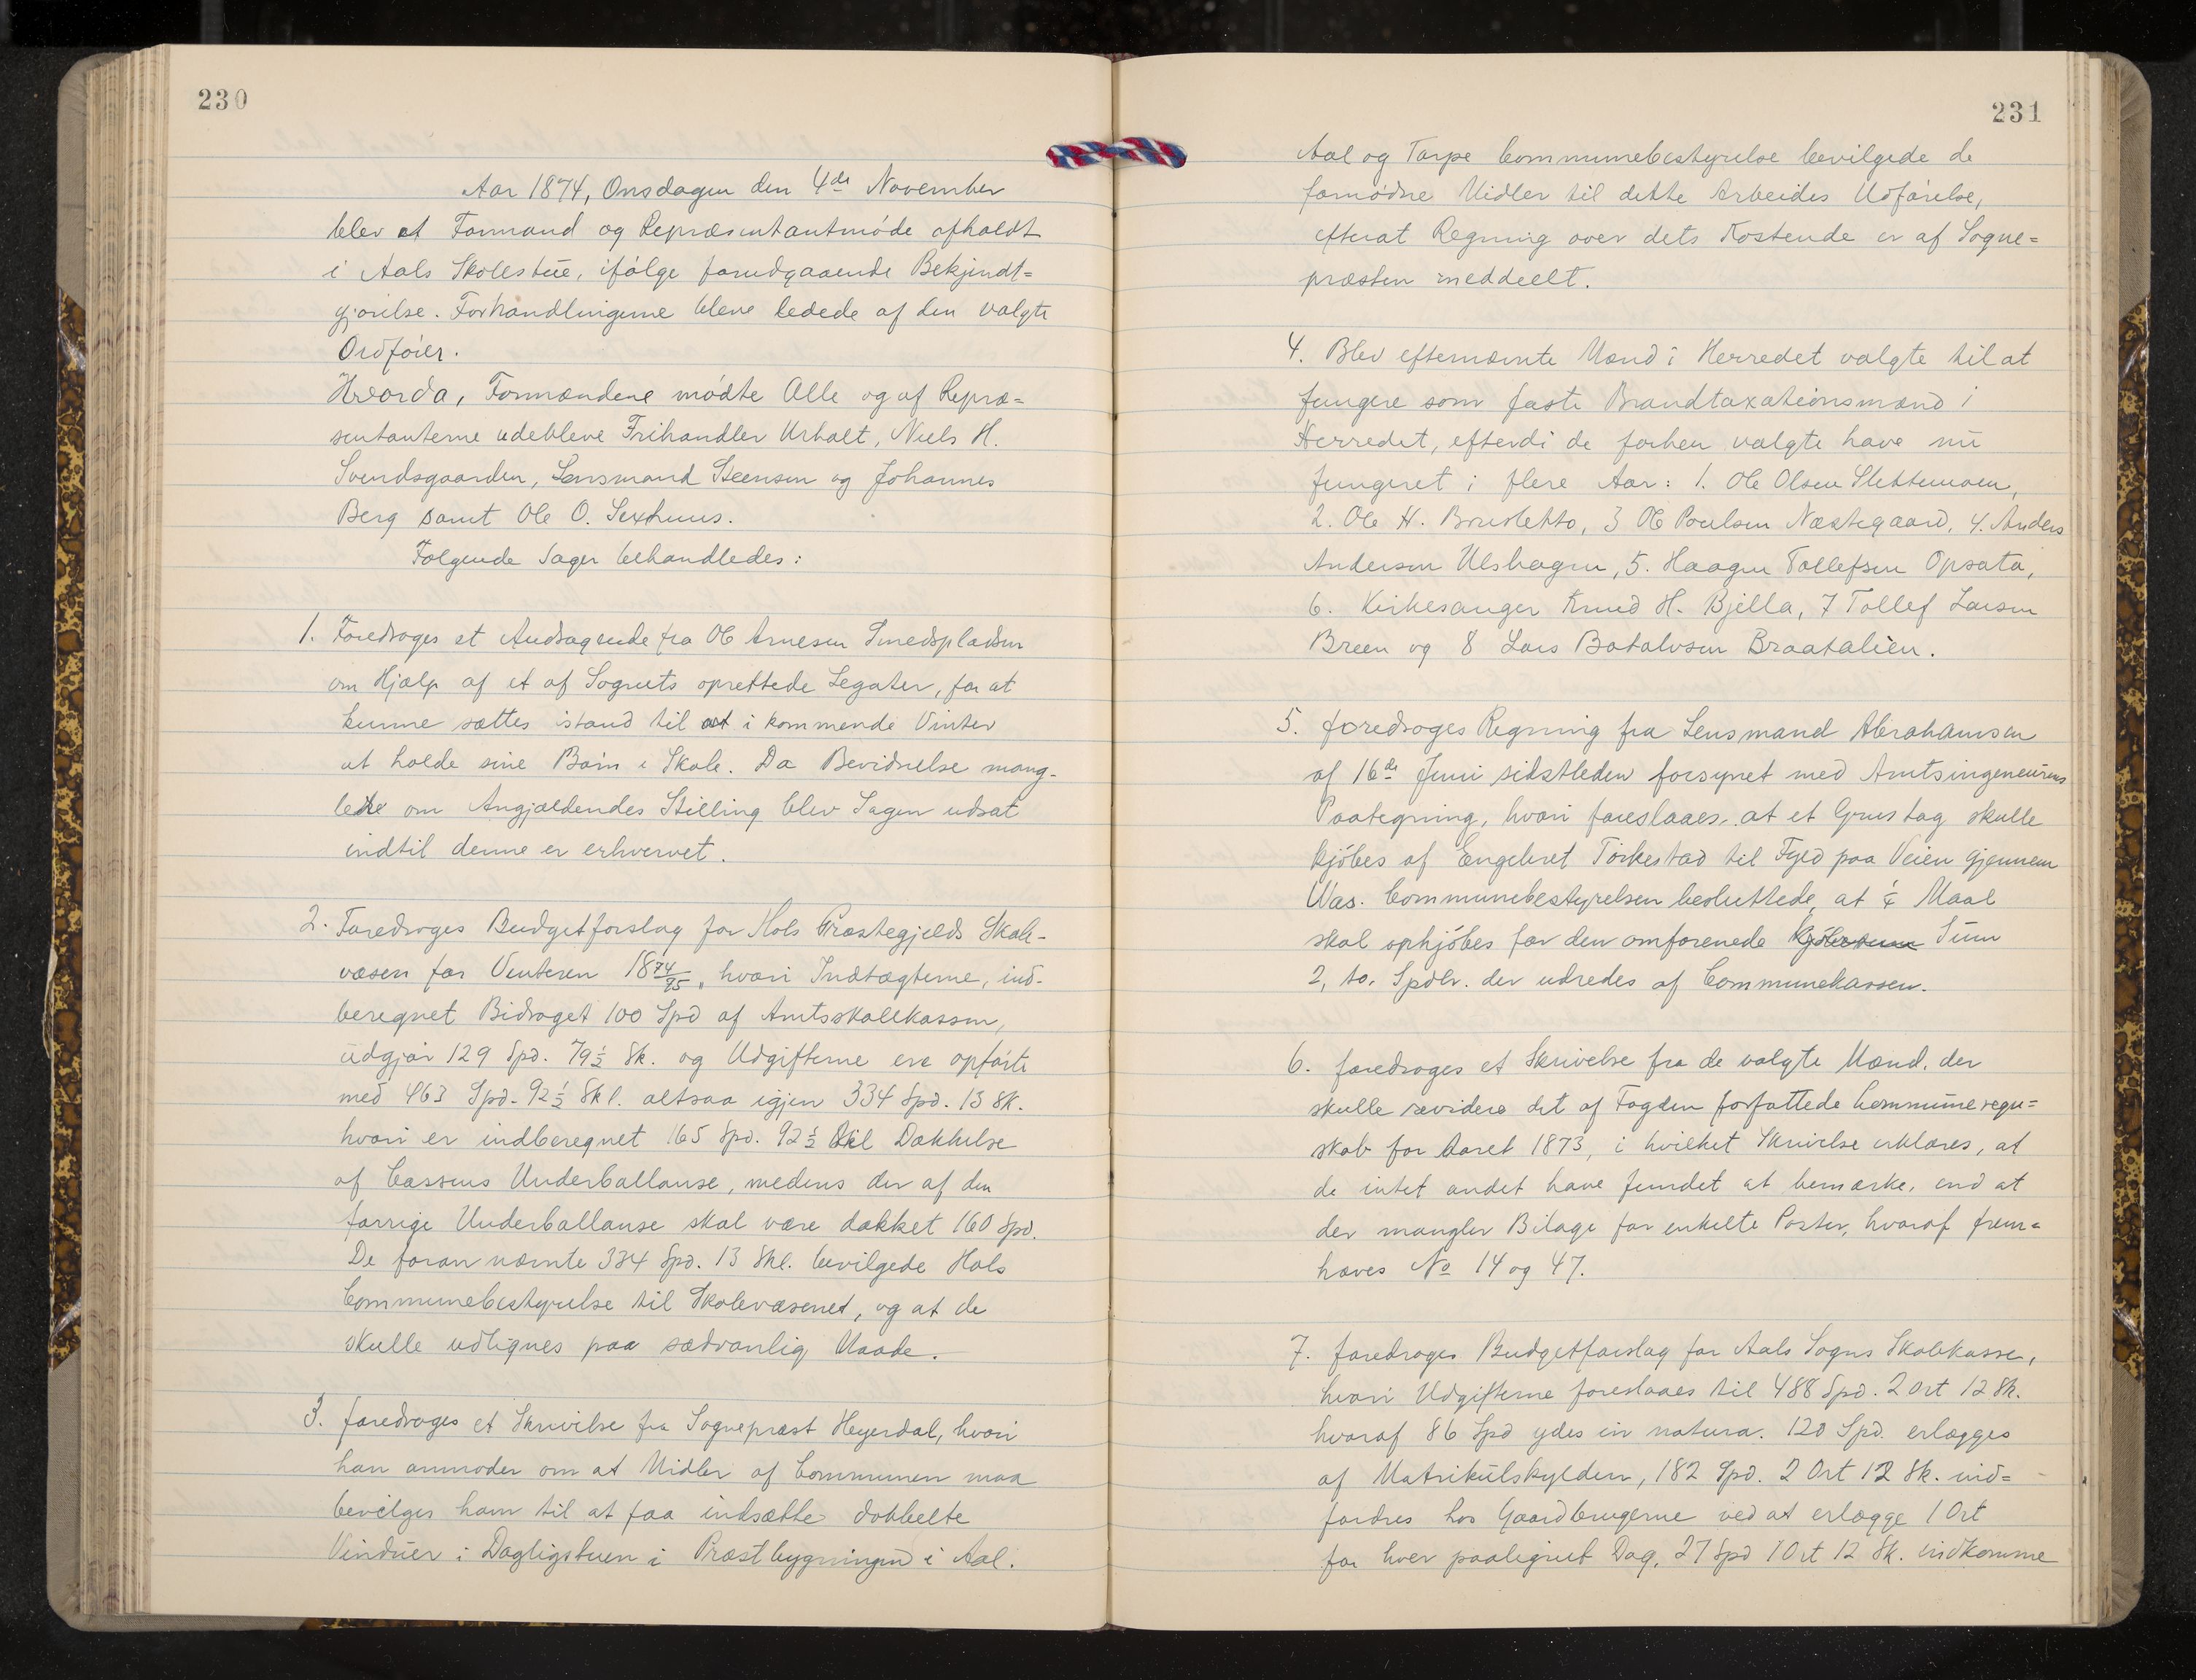 230
Aar 1874, Onsdagen den 4de November
blev et Formand og Repræsentantmöde afholdt
i Aals Skolestue, ifölge forudgaaende Bekjendt=
gjörelse. Forhandlingerne bleve ledede af den valgte
Ordförer.
Hvorda, Formændene mödte Alle og af Repræ=
sentanterne udebleve Frihandler Urholt, Niels H.
Svendsgaarden, Lensmand Steensen og Johannes
Berg samt Ole O. Sexhuus.
Følgende Sager behandledes:
1. Foredroges et Andragende fra Ole Arnesen Smedspladsen
om Hjælp af et af Sognets oprettede Legater, for at
kunne sættes istand til i kommende Vinter
at holde sine Börn i Skole. Da Bevidnelse mang-
lede om Angjældendes Stilling blev Sagen udsat
indtil denne er erhvervet.
2. Foredroges Budgetforslag for Hols Præstegjelds Skole-
væsen for Vinteren 1874/75, hvori Indtægterne, ind-
beregnet Bidraget 100 Spd af Amtsskolekassen,
udgjör 129 Spd. 79½ Sk. og Udgifterne ere opförte
med 463 Spd. 92½ Skl. altsaa igjen 334 Spd. 13 Sk.
hvori er indberegnet 165 Spd. 92½ til Dækkelse
af Cassens Underballanse, medens der af den
forrige Underballanse skal være dækket 160 Spd.
De foran nævnte 334 Spd. 13 Skl. bevilgede Hols
Communebestyrelse til Skolevæsenet, og at de
skulle udlignes paa sædvanlig Maade.
3. foredroges et Skrivelse fra Sognepræst Heyerdal, hvori
han anmoder om at Midler af Communen maa
bevilges ham til at faa indsætte dobbelte
Vinduer i Dagligstuen i Præstbygningen i Aal.
231
Aal og Torpe Communebestyrelse bevilgede de
fornödne Midler til dette Arbeides Udförelse,
efterat Regning over dets Kostende er af Sogne=
præsten meddeelt.
4. Blev efternævnte Mænd i Herredet valgte til at
fungere som faste Brandtaxationsmænd i
Herredet, efterdi de forhen valgte have nu
fungeret i flere Aar: 1. Ole Olsen Slettemoen,
2. Ole H. Brusletto, 3 Ole Poulsen Næstegaard, 4. Anders
Andersen Ulshagen, 5. Haagen Tollefsen Opsata,
6. Kirkesanger Knud H. Bjella, 7 Tollef Larsen
Breen og 8 Lars Botolvsen Braatalien.
5. foredroges Regning fra Lensmand Abrahamsen
af 16de Juni sidstleden forsynet med Amtsingeneurens
Paategning, hvori foreslaaes, at et Grustag skulle
kjöbes af Engebret Törkestad til Fyld paa Veien gjennem
Aas. Communebestyrelsen besluttede, at ¼ Maal
skal opkjöbes for den omforenede Kjöbesum Sum
2, to. Spdlr. der udredes af Communekassen.
6. foredroges et Skrivelse fra de valgte Mænd, der
skulle revidere det af Fogden forfattede Communeregn=
skab for Aaret 1873, i hvilket Skrivelse erklæres, at
de intet andet have fundet at bemærke, end at
der mangler Bilage for enkelte Poster, hvoraf frem=
hæves No 14 og 47.
7. foredroges Budgetforslag for Aals Sogns Skolekasse,
hvori Udgifterne foreslaaes til 488 Spd. 2 Ort 12 Sk.
hvoraf 86 Spd ydes in natura. 120 Spd. erlægges
af Matrikulskylden, 182 Spd. 2 Ort 12 Sk. ind=
fordres hos Gaardbrugerne ved at erlægge 1 Ort
for hver paalignet Dag, 27 Spd 1 Ort 12 Sk. indkomme